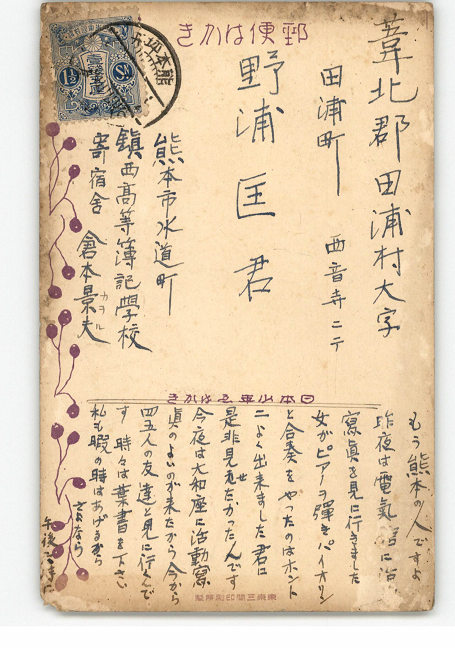 郵便はかき
葦北郡田浦村大字
田浦町 西音寺ニテ
野浦匡君
熊本市水道町
鎮西高等簿記学校
寄宿舎 倉本景夫
カヲル
熊本
壹銭五厘
1½ Sn.
日本少年はかき
もう熊本の人ですよ
昨夜は電気館に活
寫眞を見に行きました
女がピアーヲ彈きバイオリン
と合奏をやったのはホント
ニよく出来ました 君に
是非見せたかったんです
今夜は大和座に活動寫
眞のよいのが来たから今から
四五人の友達と見に行くんで
す 時々は葉書を下さい
私も暇の時はあげるから
さよなら
午後六時